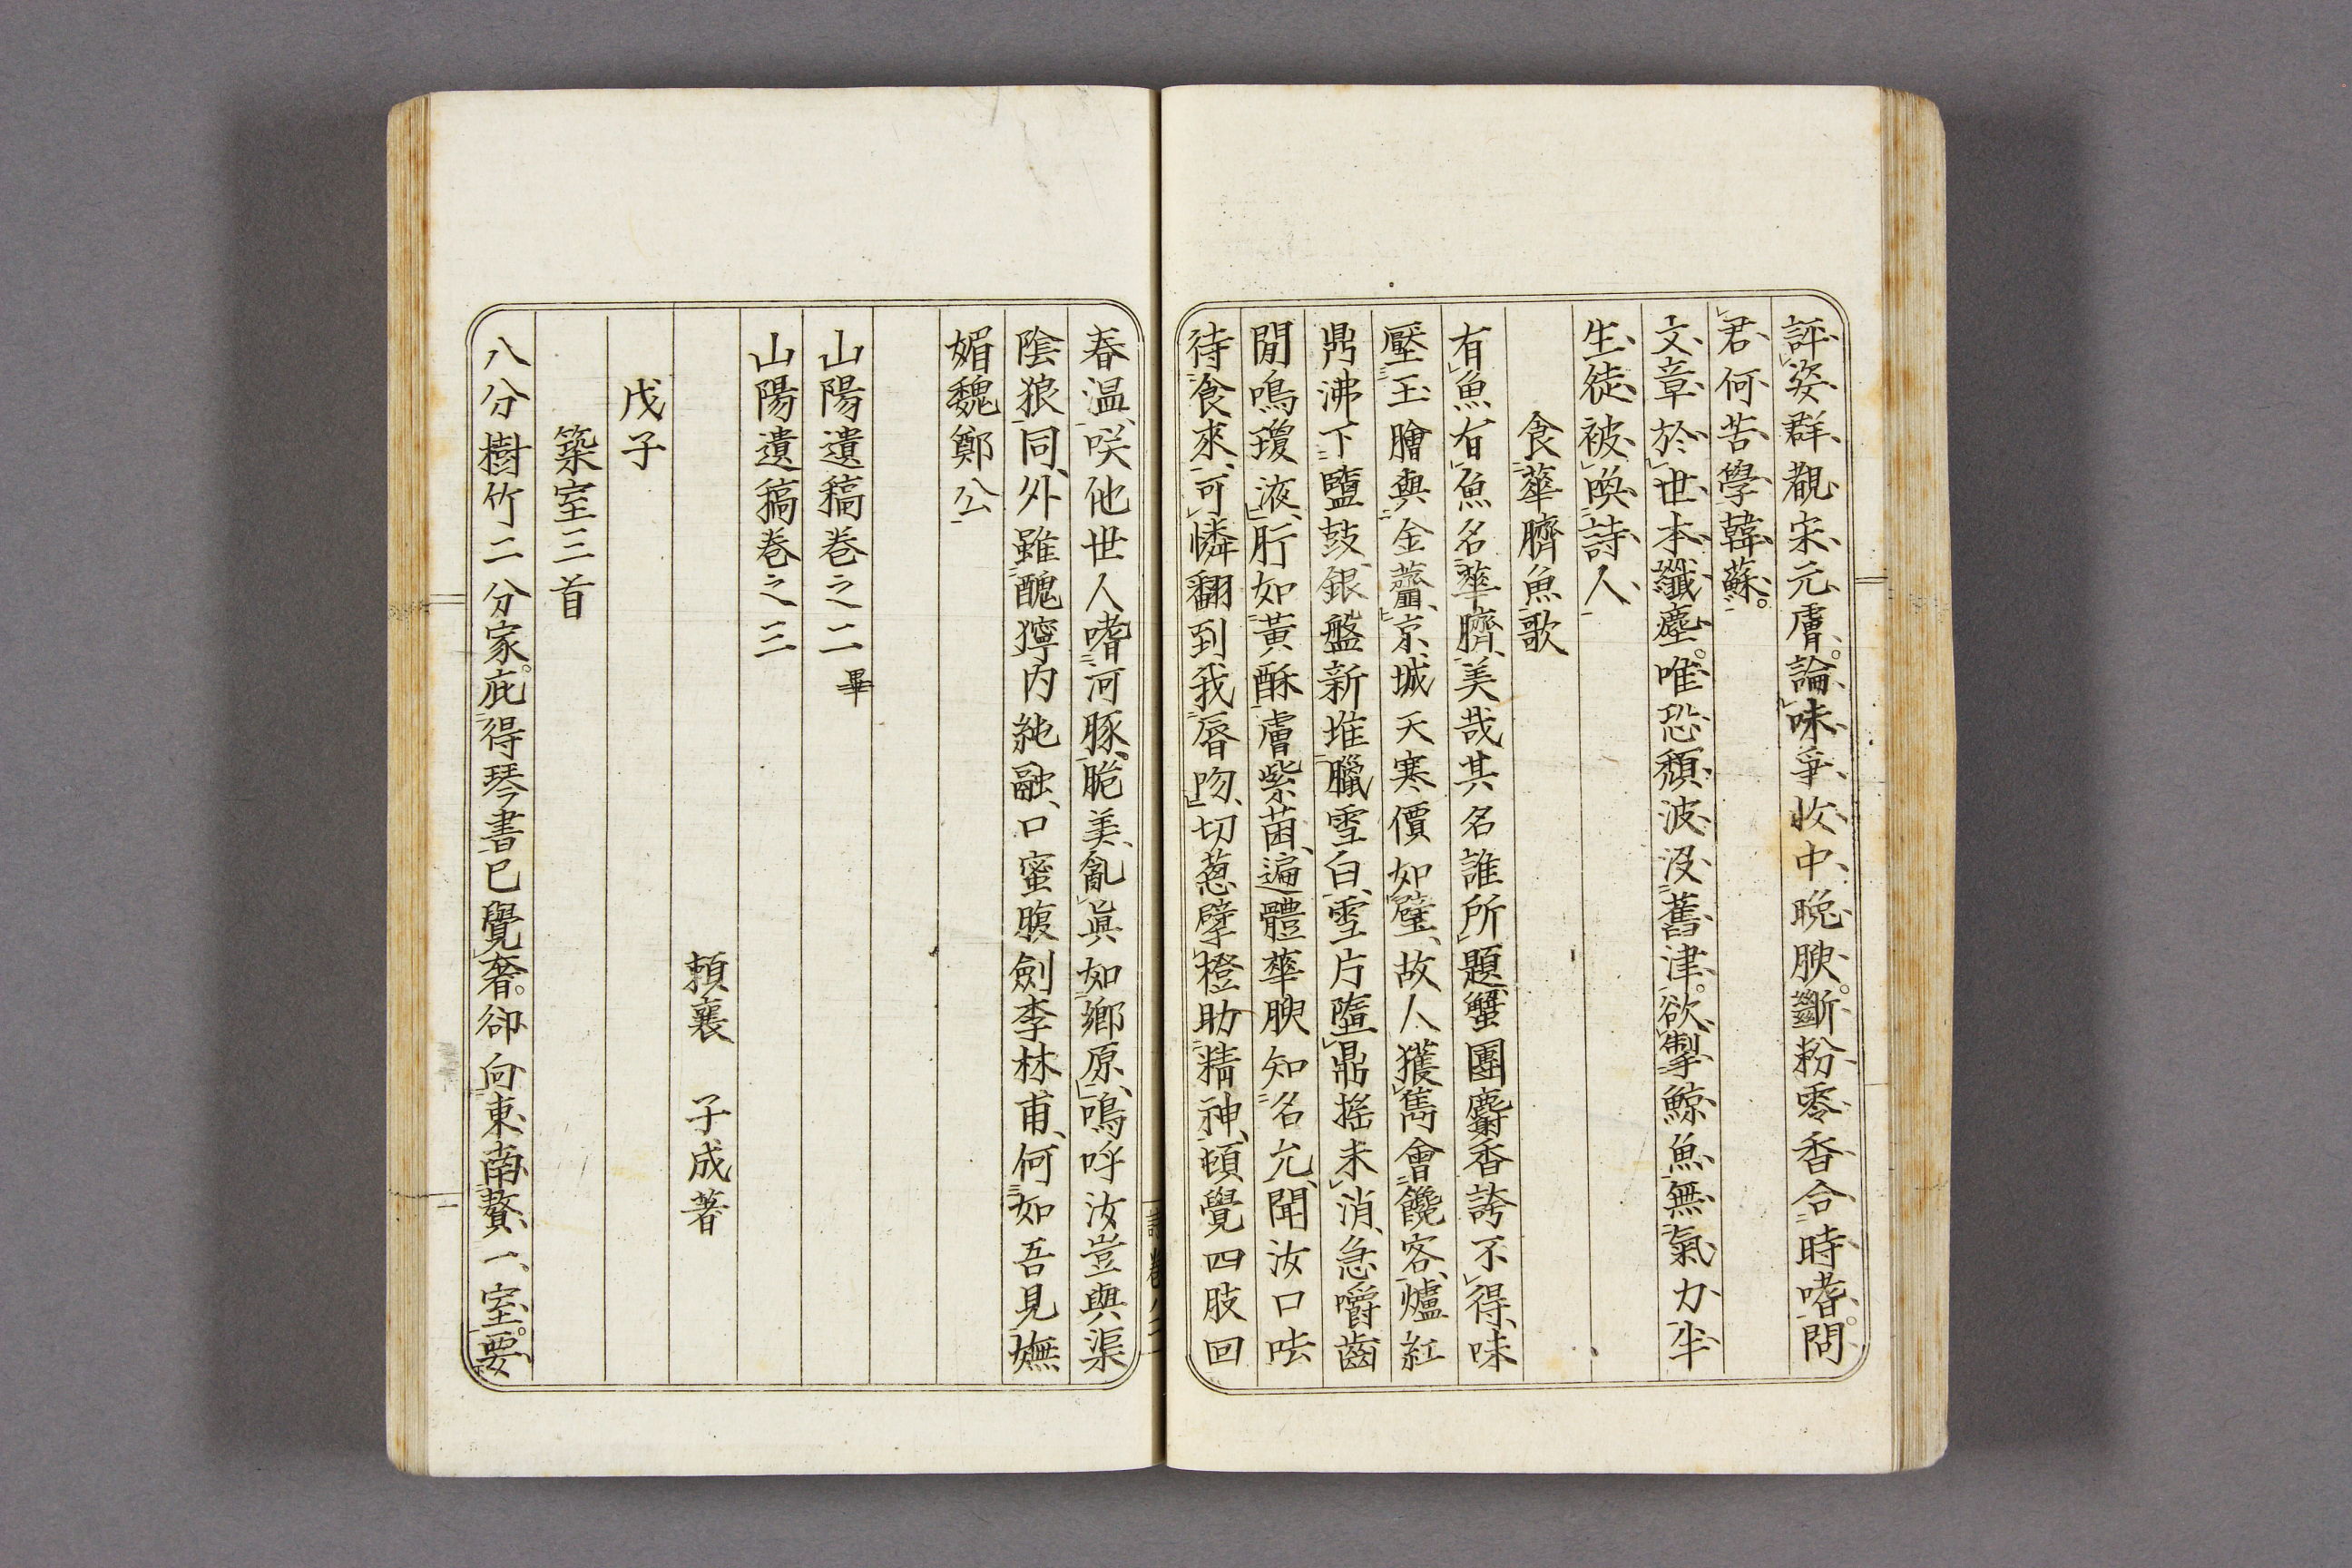 評姿群覩宋元膚論味爭收中晩腴斷粉零香合時嗜問
君何苦學韓蘇
文章於世本纖塵唯恐頽波没舊津欲掣鯨魚無氣力半
生徒被喚詩人
食華臍魚歌
有魚有魚名華臍美哉其名誰所題蟹團麝香誇不得味
壓玉膾與金虀京城天寒價如璧故人獲雋會饞客爐紅
鼎沸下鹽豉銀盤新堆臘雪白雪片墮鼎搖未消急嚼齒
間鳴瓊液肝如黃酥膚紫菌遍體華腴知名允聞汝口呿
待食來可憐翻到我唇吻切蔥擘橙助精神頓覺四肢回
春溫咲他世人嗜河豚脆美亂眞如鄉原嗚呼汝豈與渠
陰狼同外雖醜獰内純融口蜜腹劍李林甫何如吾見嫵
媚魏鄭公
山陽遺稿卷之二畢
山陽遺稿卷之三
頼襄 子成著
戊子
築室三首
八分樹竹二分家庇得琴書已覺奢卻向東南贅一室要